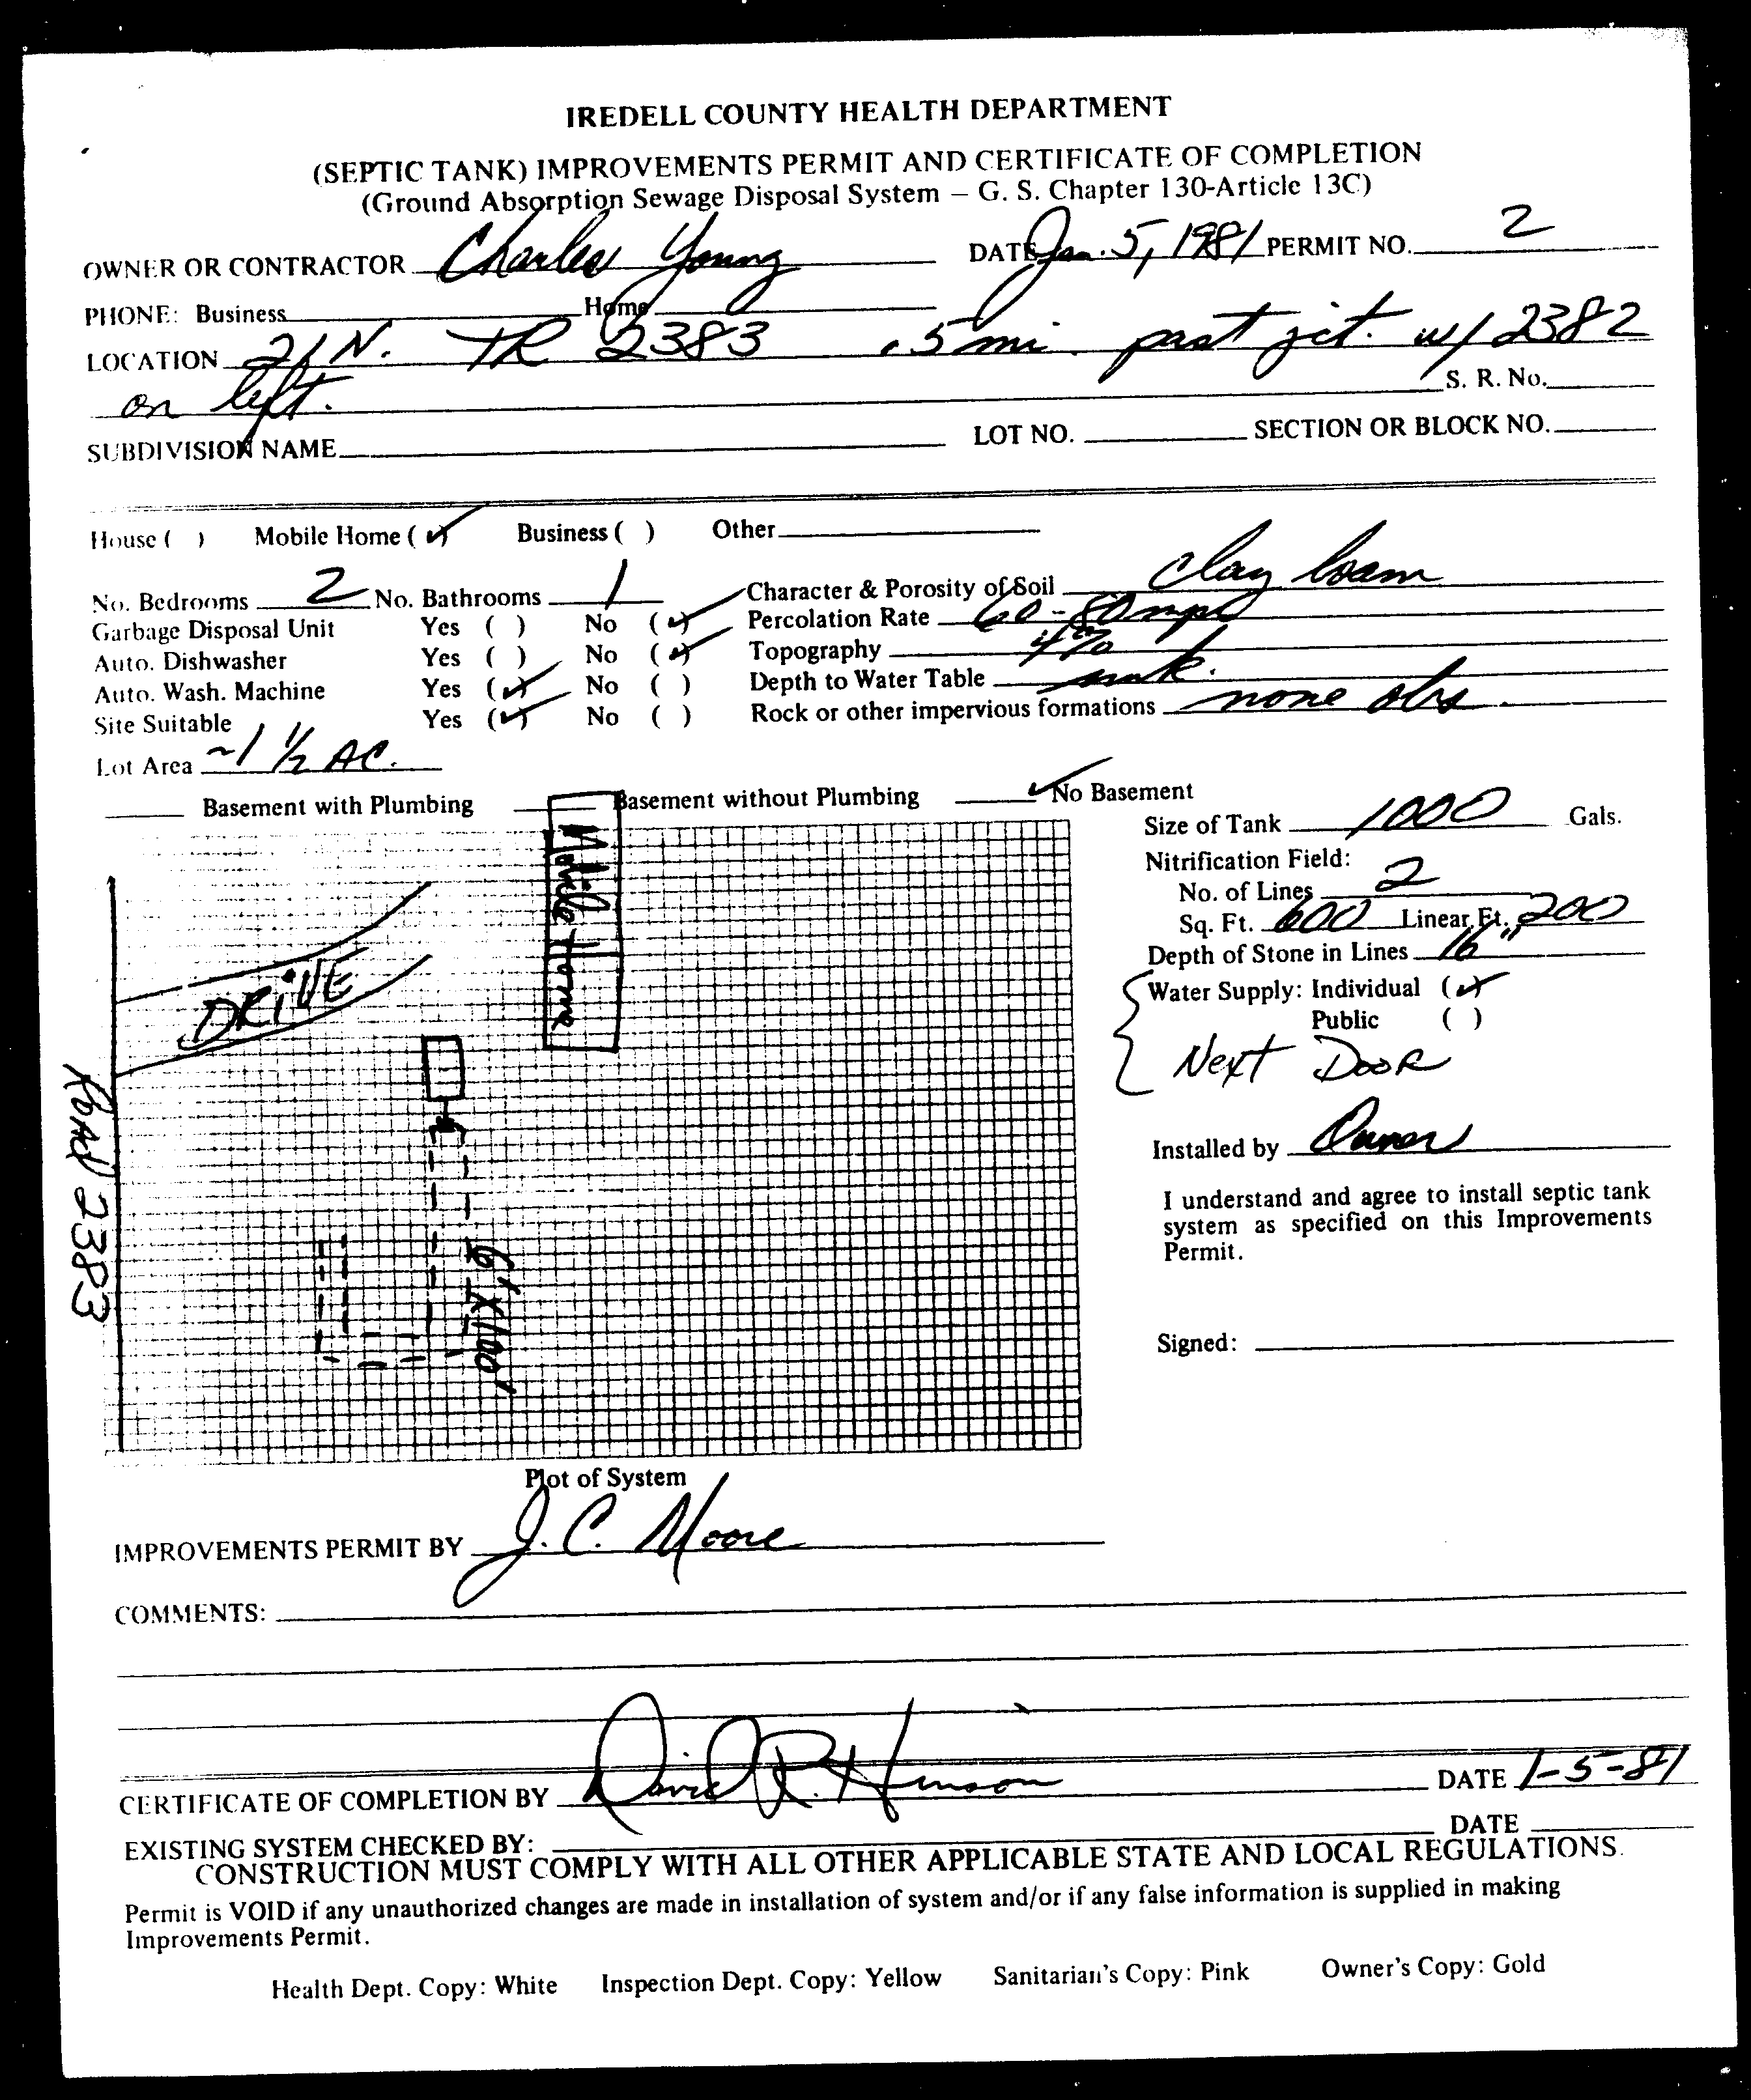 IREDELL COUNTY HEALTH DEPARTMENT
(SEPTIC TANK) IMPROVEMENTS PERMIT AND CERTIFICATE OF COMPLETION
(Ground Absorption Sewage Disposal System – G. S. Chapter 130-Article 13C)
OWNER OR CONTRACTOR Charles Young DATE Jan. 5, 1981 PERMIT NO. 2
PHONE: Business Home
LOCATION 21 N. TR 2383 .5 mi. past jct. w/ 2382
on left. S. R. No.
SUBDIVISION NAME LOT NO. SECTION OR BLOCK NO.
House ( ) Mobile Home (✓) Business ( ) Other
No. Bedrooms 2 No. Bathrooms 1 Character & Porosity of Soil clay loam
Garbage Disposal Unit Yes ( ) No (✓) Percolation Rate 60-80 mpi
Auto. Dishwasher Yes ( ) No (✓) Topography 4%
Auto. Wash. Machine Yes (✓) No ( ) Depth to Water Table unk.
Site Suitable Yes (✓) No ( ) Rock or other impervious formations none obs.
Lot Area ~1 ½ AC.
Basement with Plumbing Basement without Plumbing ✓ No Basement
Size of Tank 1000 Gals.
Nitrification Field:
No. of Lines 2
Sq. Ft. 600 Linear Ft. 200
Depth of Stone in Lines 16"
Water Supply: Individual (✓)
Public ( )
Next Door
Installed by Owner
I understand and agree to install septic tank
system as specified on this Improvements
Permit.
Signed:
Mobile Home
DRIVE
Road 2383
6'X100'
Plot of System
IMPROVEMENTS PERMIT BY J. C. Moore
COMMENTS:
CERTIFICATE OF COMPLETION BY David R. Hinson DATE 1-5-81
EXISTING SYSTEM CHECKED BY: DATE
CONSTRUCTION MUST COMPLY WITH ALL OTHER APPLICABLE STATE AND LOCAL REGULATIONS.
Permit is VOID if any unauthorized changes are made in installation of system and/or if any false information is supplied in making
Improvements Permit.
Health Dept. Copy: White Inspection Dept. Copy: Yellow Sanitarian's Copy: Pink Owner's Copy: Gold